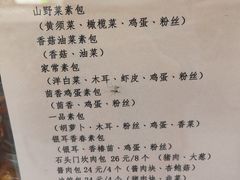 山野菜素包
（黄须菜、橄榄菜、鸡蛋、粉丝）
香菇油菜素包
（香菇、油菜）
家常素包
（洋白菜、木耳、虾皮、鸡蛋、粉丝）
茴香鸡蛋素包
（茴香、鸡蛋、粉丝）
一品素包
（胡萝卜、木耳、粉丝、鸡蛋、香菜）
银耳香卷素包
（银耳、香椿苗、鸡蛋、粉丝）
石头门坎肉包 26元/8个（猪肉、大葱）
酱肉包 24元/4个（酱肉块、杏鲍菇）
24元/4个